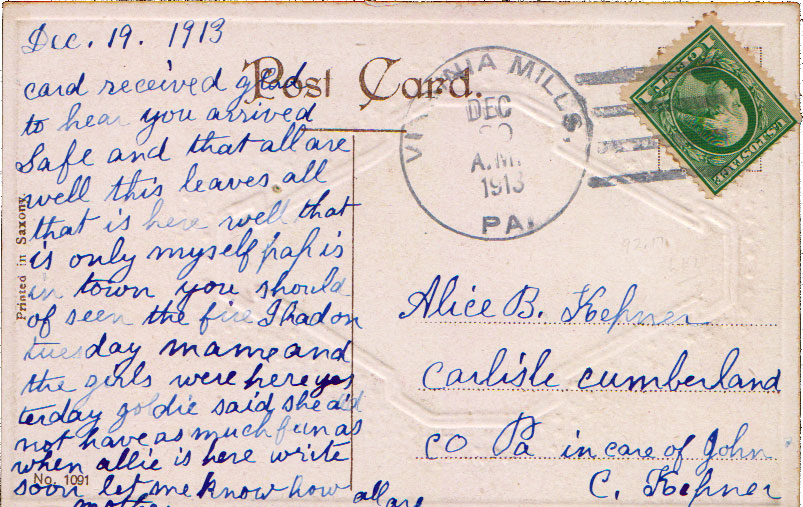 Dec. 19. 1913
Post Card.
card received glad
to hear you arrived
Safe and that all are
well this leaves all
that is here well that
is only myself pap is
in town you should
of seen the fire I had on
tuesday mame and
the girls were here yes
terday goldie said she did
not have as much fun as
when allie is here write
soon let me know how all are
mother
Printed in Saxony.
No. 1091
MILLS,
DEC
A.M.
1913
PA.
Alice B. Kepner
Carlisle Cumberland
CO Pa in care of John
C. Kepner